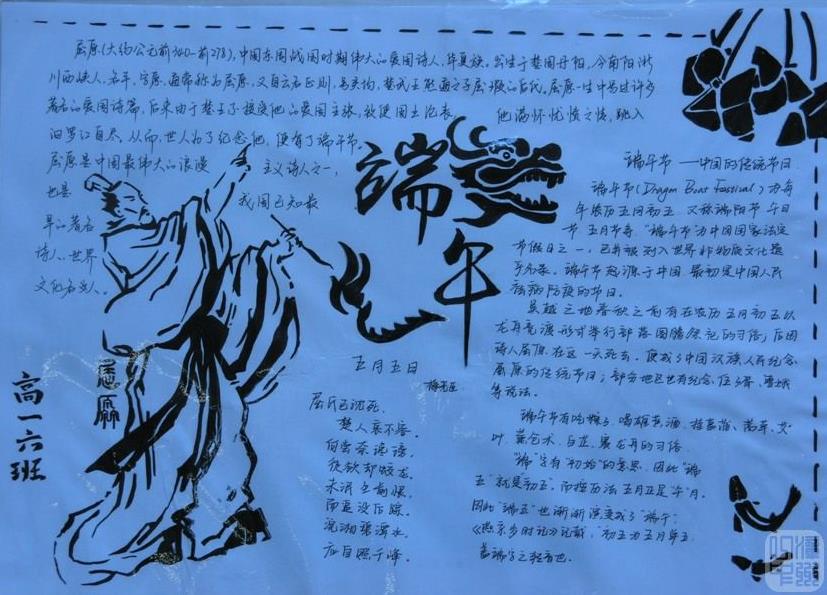 屈原(大约公元前340-前278),中国东周战国时期伟大的爱国诗人,华夏族。出生于楚国丹阳,今南阳淅
川西峡人,名平,字原,通常称为屈原,又自云名正则,号灵均,楚武王熊通之子屈瑕的后代。屈原一生中写过许多
著名的爱国诗篇,后来由于楚王不接受他的爱国主张,致使国土沦丧, 他满怀忧愤之情,跳入
汨罗江自尽。从而,世人为了纪念他,便有了端午节。
屈原是中国最伟大的浪漫 主义诗人之一,
也是 我国已知最
早的著名
诗人、世界
文化名人。
端午
屈原
高一六班
五月五日
梅尧臣
屈氏已沉死,
楚人哀不容。
何尝奈谗谤,
徒欲却蛟龙。
未泯生前恨,
而追没后踪。
沅湘碧潭水,
应自照千峰。
端午节——中国的传统节日
端午节(Dragon Boat Festival)为每
年农历五月初五,又称端阳节、午日
节、五月节等。“端午节”为中国国家法定
节假日之一,已并被列入世界非物质文化遗
产名录。端午节起源于中国,最初是中国人民
祛病防疫的节日。
吴越之地春秋之前有在农历五月初五以
龙舟竞渡形式举行部落图腾祭祀的习俗;后因
诗人屈原在这一天死去,便成了中国汉族人民纪念
屈原的传统节日;部分地区也有纪念伍子胥、曹娥
等说法。
端午节有吃粽子,喝雄黄酒,挂菖蒲、蒿草、艾
叶,薰苍术、白芷,赛龙舟的习俗。
“端”字有“初始”的意思,因此“端
五”就是“初五”。而按历法五月正是“午”月,
因此“端五”也渐渐演变成了“端午”。
《燕京岁时记》记载:“初五为五月单五,
盖端字之转音也。